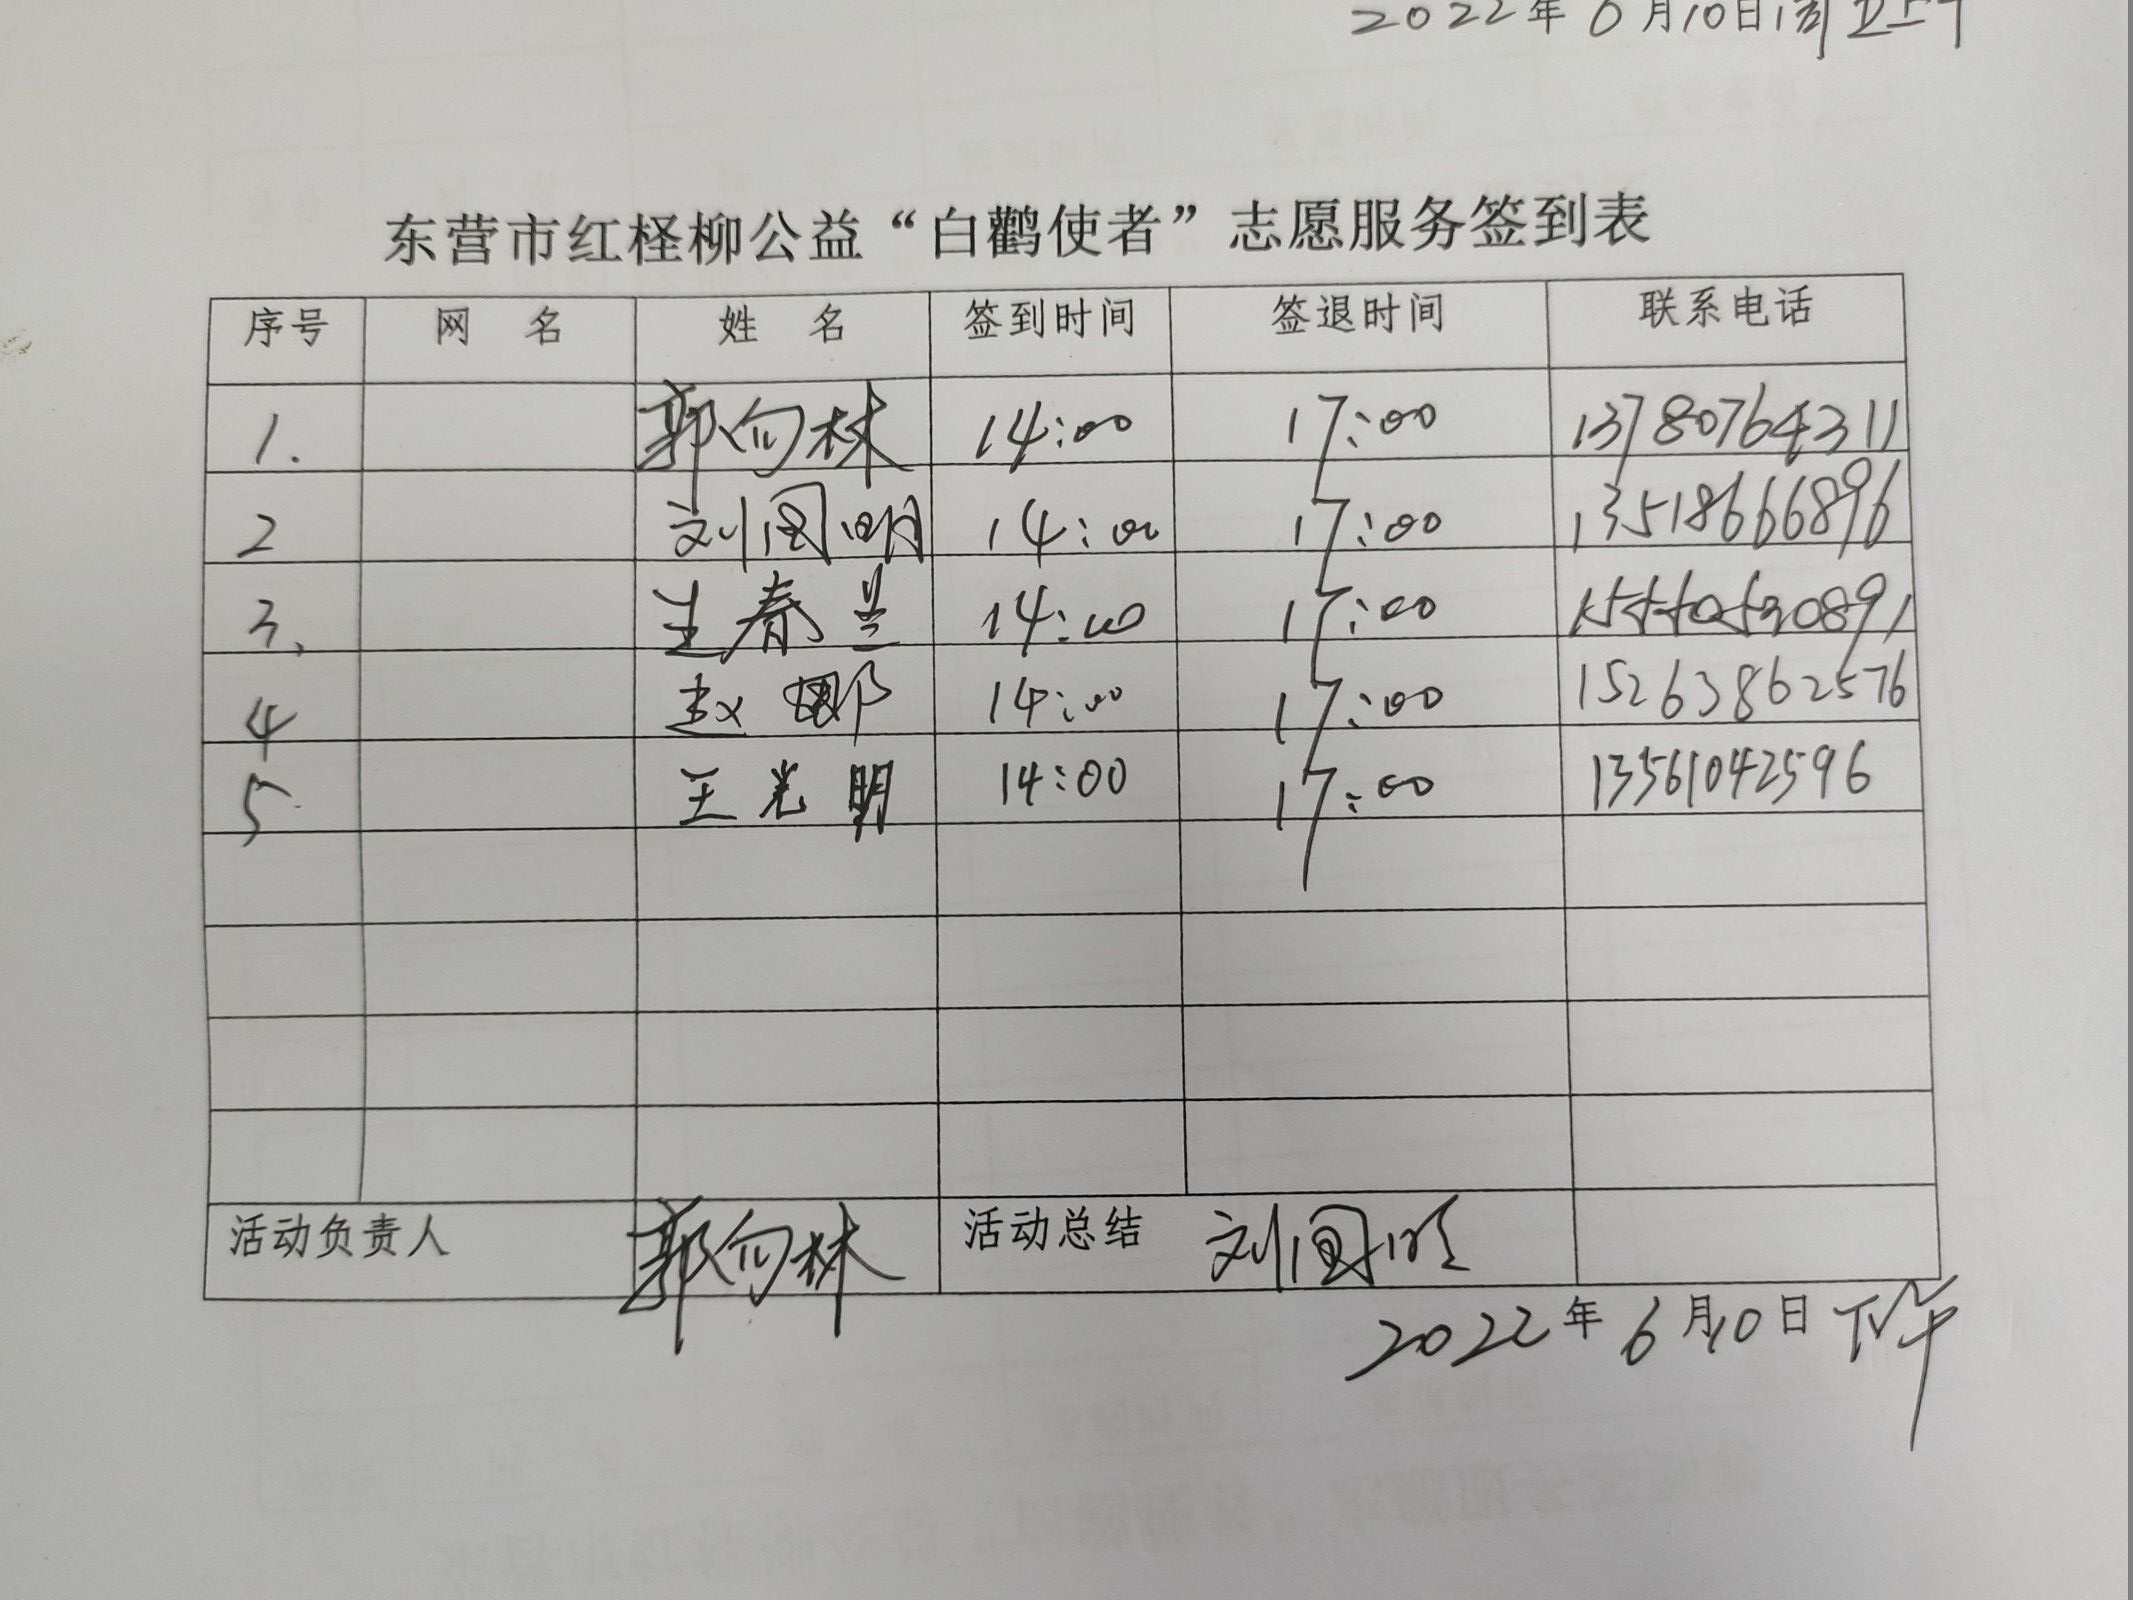 2022年6月10日周五上午
东营市红柽柳公益“白鹳使者”志愿服务签到表
序号 网 名 姓 名 签到时间 签退时间 联系电话
1. 郭向林 14:00 17:00 13780764311
2 刘国明 14:00 17:00 13518666896
3. 生春兰 14:00 17:00
4 赵娜 14:00 17:00 15263862576
5 王光明 14:00 17:00 13561042596
活动负责人 郭向林 活动总结 刘国明
2022年6月10日下午